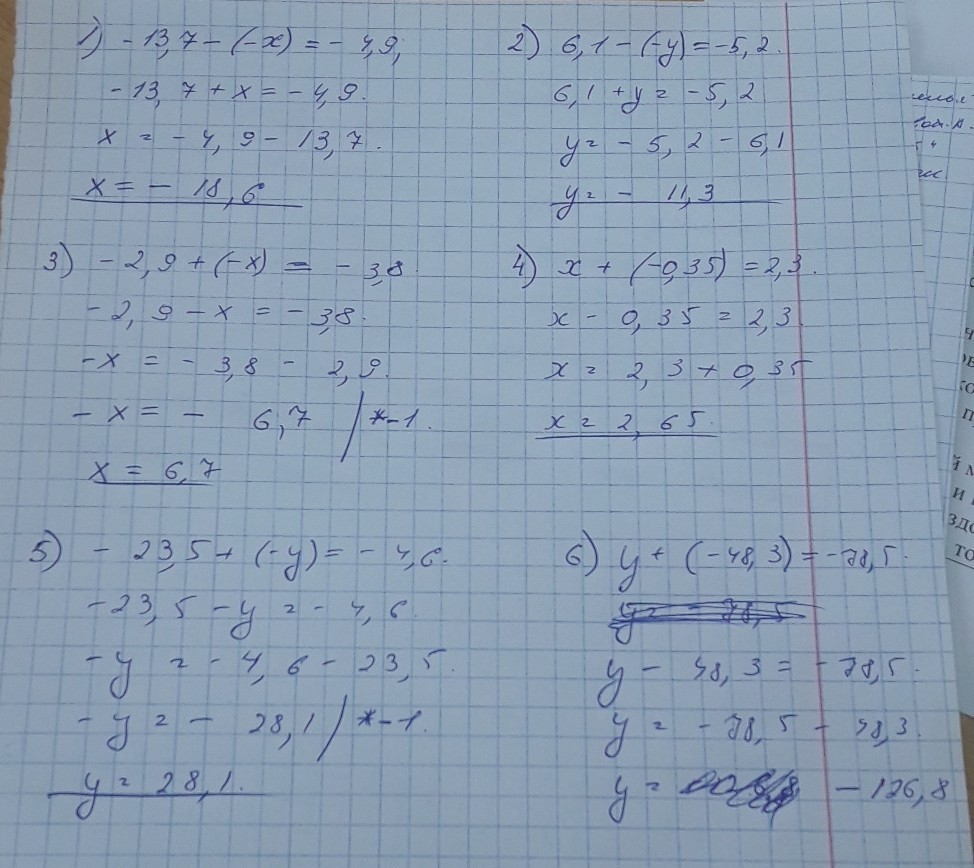 1) -13,7-(-x)=-4,9,
-13,7+x=-4,9.
x = -4,9-13,7.
x=-18,6
2) 6,1-(-y)=-5,2.
6,1+y=-5,2
y=-5,2-6,1
y=-11,3
3) -2,9+(-x)=-3,8
-2,9-x=-3,8.
-x=-3,8-2,9.
-x=-6,7 /*-1.
x=6,7
4) x+(-0,35)=2,3.
x-0,35=2,3.
x=2,3+0,35
x=2,65.
5) -23,5+(-y)=-4,6.
-23,5-y=-4,6.
-y=-4,6-23,5.
-y=-28,1/*-1.
y=28,1.
6) y+(-48,3)=-78,5.
y=-78,5
y-48,3=-78,5.
y=-78,5-48,3.
y= -126,8
й м
и
здо
то